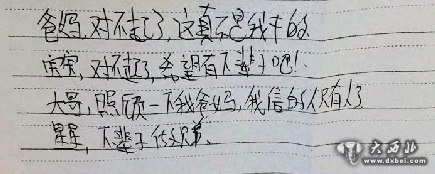 爸妈,对不起了,这真不是我干的
宝宝,对不起了,希望有下辈子吧!
大哥,照顾一下我爸妈,我信的人只有你了
星星,下辈子做兄弟、
大西北
www.dxbei.com